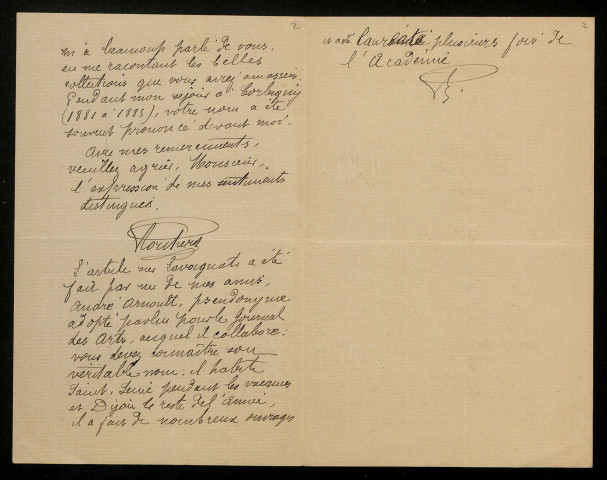 2
m'a beaucoup parlé de vous,
en me racontant les belles
collections que vous avez amassées.
Pendant mon séjour à Corbigny
(1881 à 1885), votre nom a été
souvent prononcé devant moi.
Avec mes remerciements,
veuillez agréer, Monsieur,
l'expression de mes sentiments
distingués.
L'article sur Lavaignats a été
fait par un de mes amis,
André Arnoult, pseudonyme
adopté par lui pour le Journal
des Arts, auquel il collabore:
vous devez connaître son
véritable nom: il habite
Saint-Seine pendant les vacances
et Dijon le reste de l'année,
il a fait de nombreux ouvrages
2
et a été lauréat plusieurs fois de
l'Académie